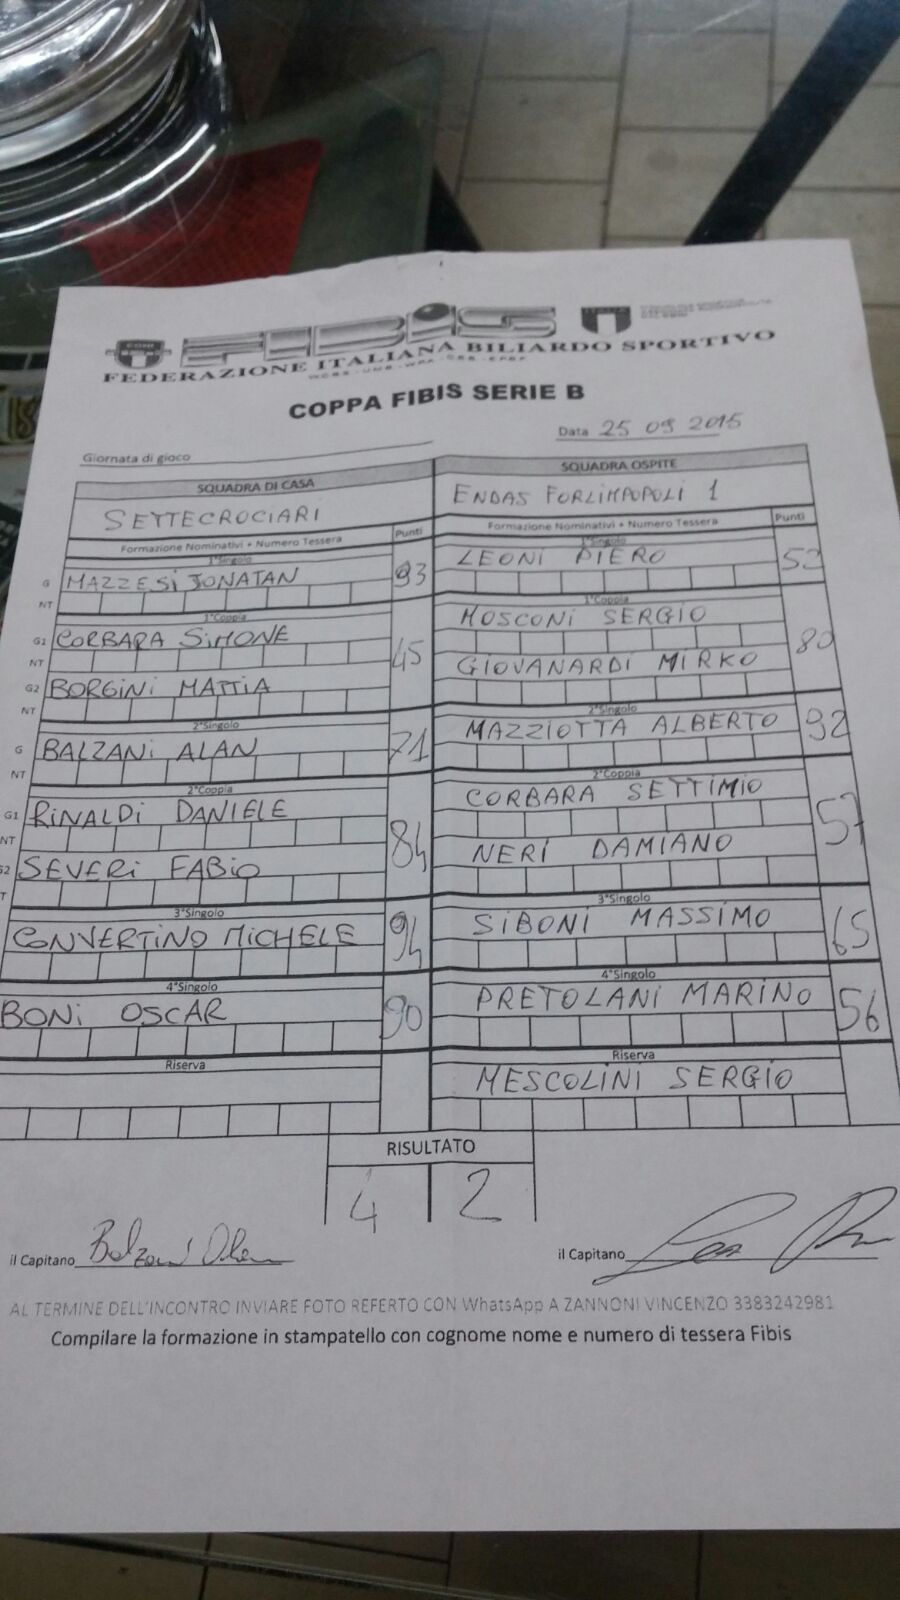 CONI
FIBiS
ITALIA
FEDERAZIONE ITALIANA BILIARDO SPORTIVO
COPPA FIBIS SERIE B
Giornata di gioco
Data 25 09 2015
SQUADRA DI CASA
SQUADRA OSPITE
SETTECROCIARI
ENDAS FORLIMPOPOLI 1
Formazione Nominativi + Numero Tessera Punti
Formazione Nominativi + Numero Tessera Punti
1°Singolo
1°Singolo
G MAZZESI JONATAN 93
LEONI PIERO 52
NT
1°Coppia
1°Coppia
G1 CORBARA SIMONE 45
MOSCONI SERGIO 80
NT
G2 BORGINI MATTIA
GIOVANARDI MIRKO
NT
2°Singolo
2°Singolo
G BALZANI ALAN 71
MAZZIOTTA ALBERTO 92
NT
2°Coppia
2°Coppia
G1 RINALDI DANIELE 84
CORBARA SETTIMIO 57
NT
G2 SEVERI FABIO
NERI DAMIANO
3°Singolo
3°Singolo
CONVERTINO MICHELE 94
SIBONI MASSIMO 65
4°Singolo
4°Singolo
BONI OSCAR 90
PRETOLANI MARINO 56
Riserva
Riserva
MESCOLINI SERGIO
RISULTATO
4 2
il Capitano Balzani Alan
il Capitano
AL TERMINE DELL'INCONTRO INVIARE FOTO REFERTO CON WhatsApp A ZANNONI VINCENZO 3383242981
Compilare la formazione in stampatello con cognome nome e numero di tessera Fibis